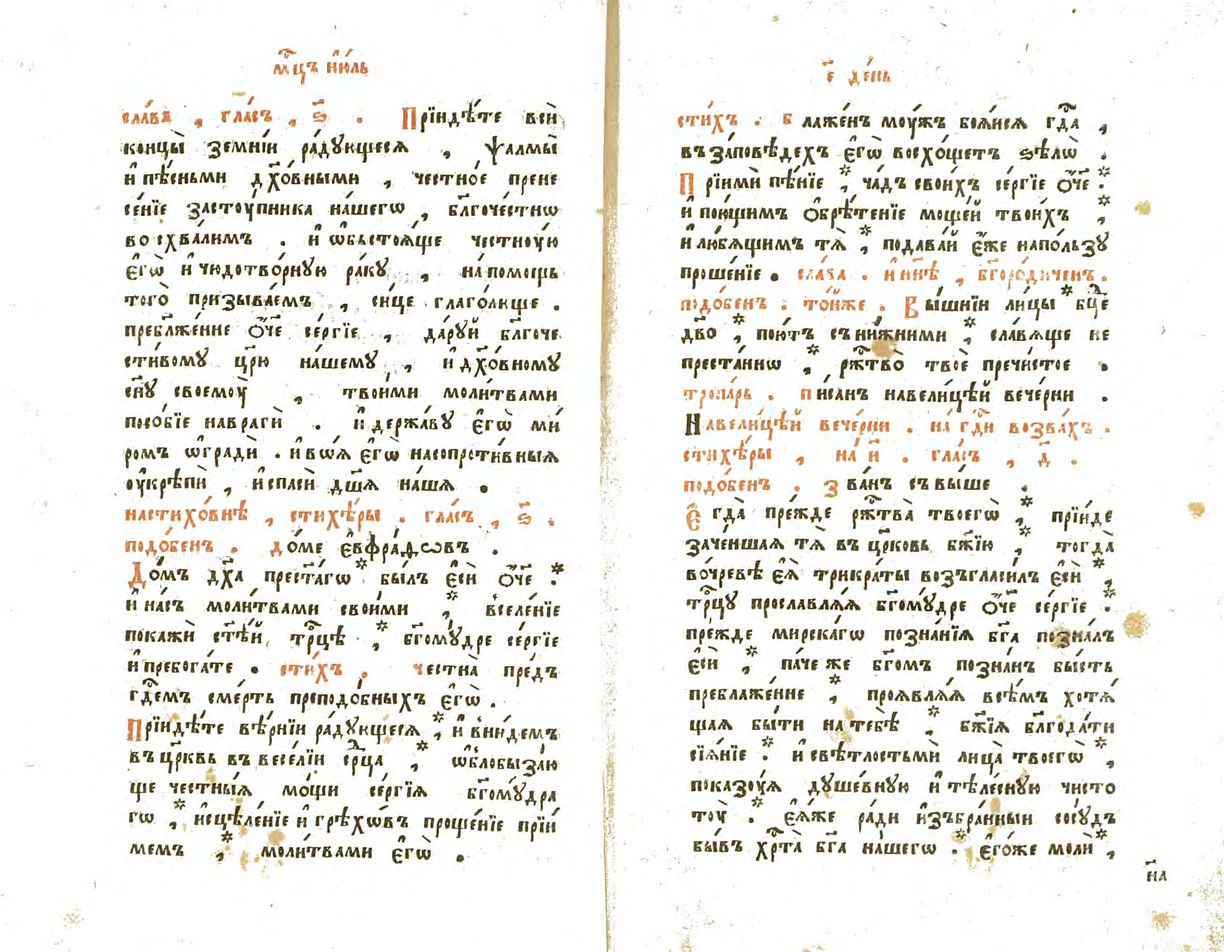 мц҃ъ і҆ю́ль
сла́ва , гла́съ , ѕ҃ . Прїидѣ́те вси̑
концы̀ земні́и ра́дꙋющеся , ѱалмы̀
и҆ пѣ́сньми дх҃о́вными , че́стно́е прене
се́нїе засто́упника на́шегѡ , бл҃гоче́стнѡ
восхва́лимъ . и҆ ѡ҆бьстоя́ще честноу́ю
є҆гѡ̀ и҆ чюдотво́рную ра́кꙋ , на по́мощь
того̀ призыва́емъ , си́це глаго́люще .
преблаже́нне ѻ҆́ч҃е се́ргїе , да́рꙋй бл҃гоче
сти́вомꙋ цр҃ю̀ на́шемꙋ , и҆ дх҃о́вномꙋ
сн҃ꙋ своемоу̀ , твои́ми моли́твами
посо́бїе на врагѝ . и҆ держа́вꙋ є҆гѡ̀ ми
ромъ ѡ҆градѝ . и҆ воя̀ є҆гѡ̀ на сопроти́вныя
оу҆крѣпѝ , и҆ спасѝ дш҃а на́ша .
на стихо́внѣ , стихѣ́ры . гла́съ , ѕ҃ .
подо́бенъ . до́ме є҆вфра́фѡвъ .
До́мъ дх҃а прест҃а́гѡ * бы́лъ є҆сѝ ѻ҆́ч҃е . *
и҆ на́съ моли́твами свои́ми , * вселе́нїе
покажѝ ст҃ѣ́й тр҃цѣ , * бг҃омꙋ́дре се́ргїе
и҆ пребога́те . сти́хъ . честна̀ предъ
гд҇емъ сме́рть преподо́бныхъ є҆гѡ̀ .
Прїидѣ́те вѣ́рнїи ра́дꙋющеся , * и҆ вни́демъ
въ цр҃квь въ весе́лїи ср҃ца , * ѡ҆блобыза́ю
ще честны́я мо́щи се́ргїя бг҃омꙋ́дра
гѡ , * и҆сцѣле́нїе и҆ грѣхо́въ проще́нїе прїи́
мемъ , * моли́твами є҆гѡ̀ .
є҃ де́нь
сти́хъ . блаже́нъ моу́жъ боя́йся гд҇а ,
въ за́повѣдехъ є҆гѡ̀ восхо́щетъ ѕѣлѡ̀ .
Прїимѝ пѣ́нїе , * ча́дъ свои́хъ се́ргїе ѻ҆́ч҃е . *
и҆ пою́щимъ ѻ҆брѣ́тенїе моще́й твои́хъ , *
и҆ лю́бящимъ тя̀ , * подава́й є҆́же на по́льзꙋ
проше́нїе . сла́ва . и҆ ны́нѣ , бг҃оро́диченъ .
подо́бенъ . то́йже . Вы́шнїи ли́цы * бц҃е
дв҃о , * пою́тъ съ ни́жними , * сла́вяще не
преста́ннѡ , * рж҇тво̀ твоѐ пречи́стое .
тропа́рь . пи́санъ на вели́цѣй вече́рни .
На вели́цѣй вече́рни . на гд҇и возва́хъ .
стихѣ́ры , на и҃ . гла́съ , д҃ .
подо́бенъ . зва́нъ съ вы́ше .
Є҆гда̀ пре́жде рж҇тва̀ твоегѡ̀ , * прїи́де
заче́ншая тя̀ въ цр҃ковь бж҃їю , * тогда̀
во чре́вѣ є҆я̀ трикра́ты возъгласи́лъ є҆сѝ , *
тр҃цꙋ прославля́я бг҃омꙋ́дре ѻ҆́ч҃е се́ргїе . *
пре́жде мирска́гѡ позна́нїя бг҃а позна́лъ
є҆сѝ , * па́че же бг҃омъ позна́нъ бы́сть
преблаже́нне , * проявля́я всѣ́мъ хотя́
щая бы́ти на тебѣ̀ , * бж҃їя бл҃года́ти
сїя́нїе . * и҆ свѣ́тлостьмѝ лица̀ твоегѡ̀ , *
показоу́я дꙋше́внꙋю и҆ тѣле́снꙋю чисто
тоу̀ . * є҆я́же ра́ди и҆збра́нныи сосꙋ́дъ
бы́въ хр҇та̀ бг҃а на́шегѡ . * є҆го́же молѝ , *
на